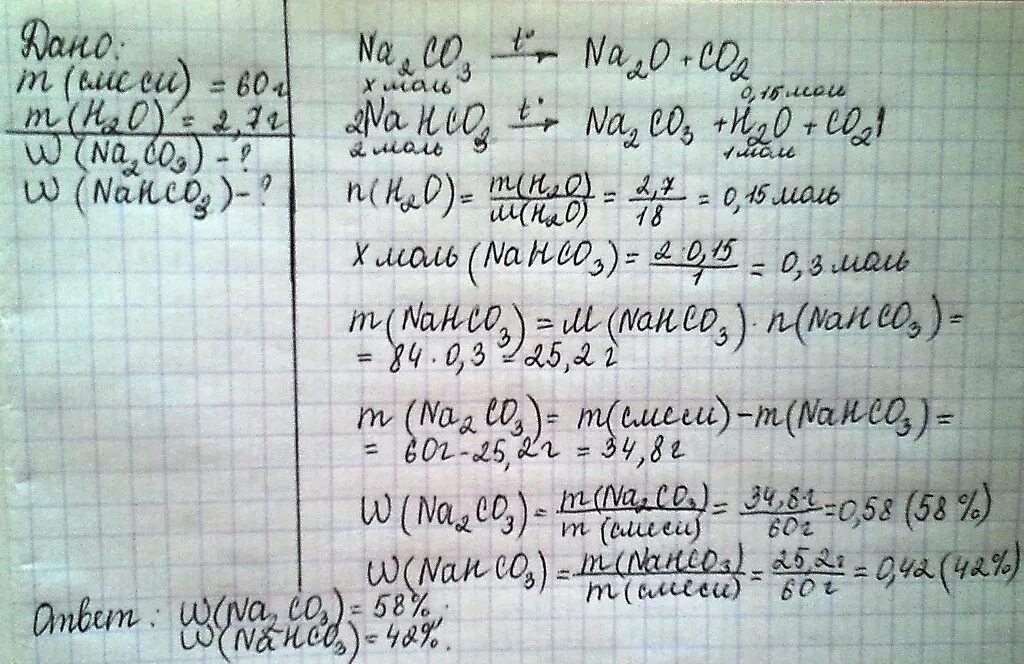 Дано:
m (смеси) = 60г
m (H₂O) = 2,7г
W (Na₂CO₃) - ?
W (NaHCO₃) - ?
Na₂CO₃ t°→ Na₂O + CO₂
x моль 0,15 моль
2NaHCO₃ t°→ Na₂CO₃ + H₂O + CO₂↑
2 моль 1 моль
n(H₂O) = m(H₂O)/M(H₂O) = 2,7/18 = 0,15 моль
x моль (NaHCO₃) = 2·0,15/1 = 0,3 моль
m (NaHCO₃) = M (NaHCO₃) · n(NaHCO₃) =
= 84 · 0,3 = 25,2 г
m (Na₂CO₃) = m(смеси) - m(NaHCO₃) =
= 60г - 25,2г = 34,8г
W (Na₂CO₃) = m(Na₂CO₃)/m (смеси) = 34,8г/60г = 0,58 (58%)
W (NaHCO₃) = m(NaHCO₃)/m(смеси) = 25,2г/60г = 0,42 (42%)
Ответ: W(Na₂CO₃) = 58%.
W(NaHCO₃) = 42%.